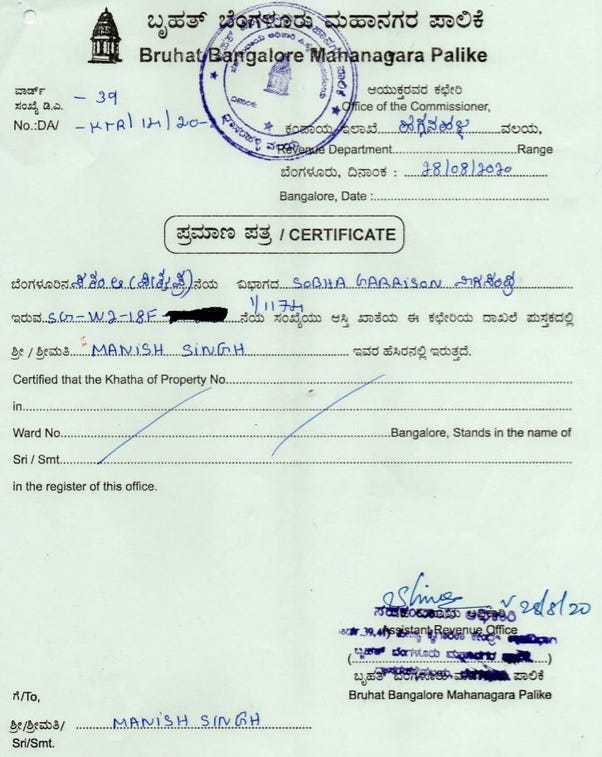 ಬೃಹತ್ ಬೆಂಗಳೂರು ಮಹಾನಗರ ಪಾಲಿಕೆ
Bruhat Bangalore Mahanagara Palike
ವಾರ್ಡ್ - 39
ಸಂಖ್ಯೆ ಡಿ.ಎ.
No.:DA/ - KTR/14/20-
ಆಯುಕ್ತರವರ ಕಛೇರಿ
Office of the Commissioner,
ಕಂದಾಯ ಇಲಾಖೆ ವಲಯ,
Revenue Department Range
ಬೆಂಗಳೂರು, ದಿನಾಂಕ : 28/08/2020
Bangalore, Date :
ಪ್ರಮಾಣ ಪತ್ರ / CERTIFICATE
ಬೆಂಗಳೂರಿನ ನೆಯ ವಿಭಾಗದ SOBHA GARRISON
ಇರುವ SG-W2-18F 1/1174 ನೆಯ ಸಂಖ್ಯೆಯು ಆಸ್ತಿ ಖಾತೆಯ ಈ ಕಛೇರಿಯ ದಾಖಲೆ ಪುಸ್ತಕದಲ್ಲಿ
ಶ್ರೀ / ಶ್ರೀಮತಿ MANISH SINGH ಇವರ ಹೆಸರಿನಲ್ಲಿ ಇರುತ್ತದೆ.
Certified that the Khatha of Property No.
in
Ward No. Bangalore, Stands in the name of
Sri / Smt.
in the register of this office.
28/8/20
ಸಹಾಯಕ ಕಂದಾಯ ಅಧಿಕಾರಿ
Assistant Revenue Office
ಬೃಹತ್ ಬೆಂಗಳೂರು ಮಹಾನಗರ
( )
ಬೃಹತ್ ಬೆಂಗಳೂರು ಮಹಾನಗರ ಪಾಲಿಕೆ
Bruhat Bangalore Mahanagara Palike
ಗೆ/To,
ಶ್ರೀ/ಶ್ರೀಮತಿ/ MANISH SINGH
Sri/Smt.